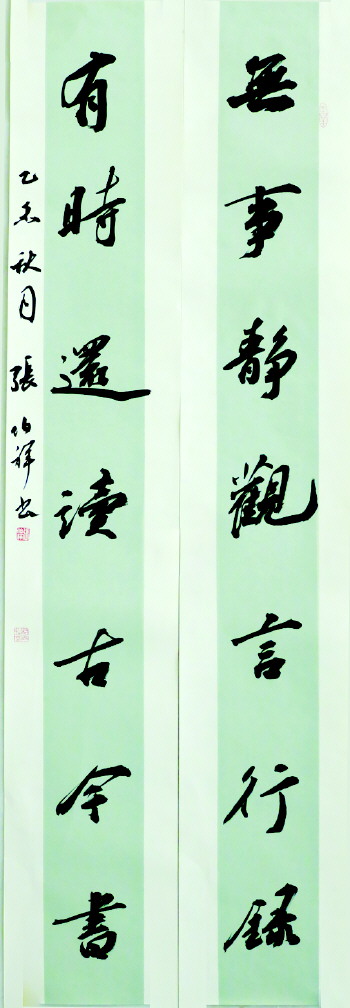 無事靜觀言行錄
有時還讀古今書
乙未秋月張伯祥書